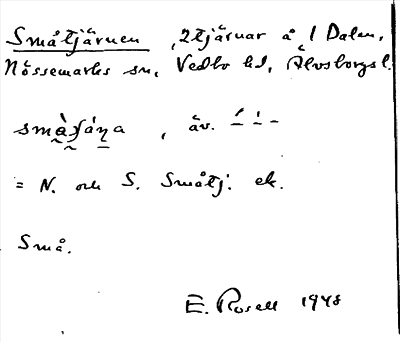 Småtjärnen, 2 tjärnar å / Dalen,
Nössemarks sn, Vedbo hd, Älvsborgs l.
små̀ʃáṇa, äv. –́ –̀ –
= N. och S. Småtj. ek.
Små.
E. Rosell 1948